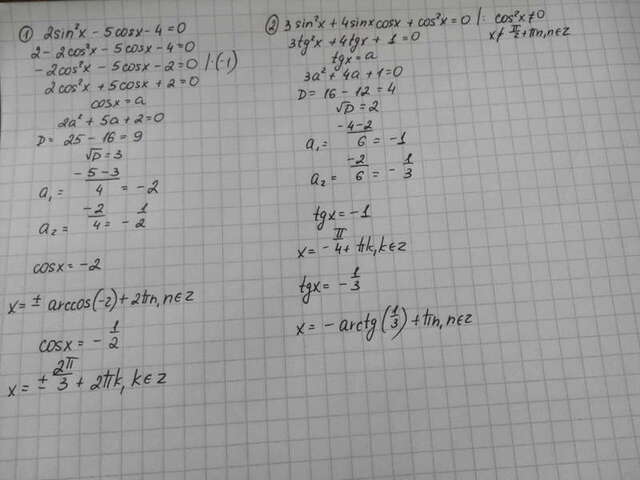 ① 2sin²x - 5cosx - 4 = 0
2 - 2cos²x - 5cosx - 4 = 0
- 2cos²x - 5cosx - 2 = 0 /·(-1)
2cos²x + 5cosx + 2 = 0
cosx = a
2a² + 5a + 2 = 0
D = 25 - 16 = 9
√D = 3
a₁ = (-5-3)/4 = -2
a₂ = -2/4 = -1/2
cosx = -2
x = ± arccos(-2) + 2πn, n∈z
cosx = -1/2
x = ± 2π/3 + 2πk, k∈z
② 3sin²x + 4sinxcosx + cos²x = 0 /: cos²x ≠ 0
x ≠ π/2 + πn, n∈z
3tg²x + 4tgx + 1 = 0
tgx = a
3a² + 4a + 1 = 0
D = 16 - 12 = 4
√D = 2
a₁ = (-4-2)/6 = -1
a₂ = -2/6 = -1/3
tgx = -1
x = -π/4 + πk, k∈z
tgx = -1/3
x = - arctg(1/3) + πn, n∈z